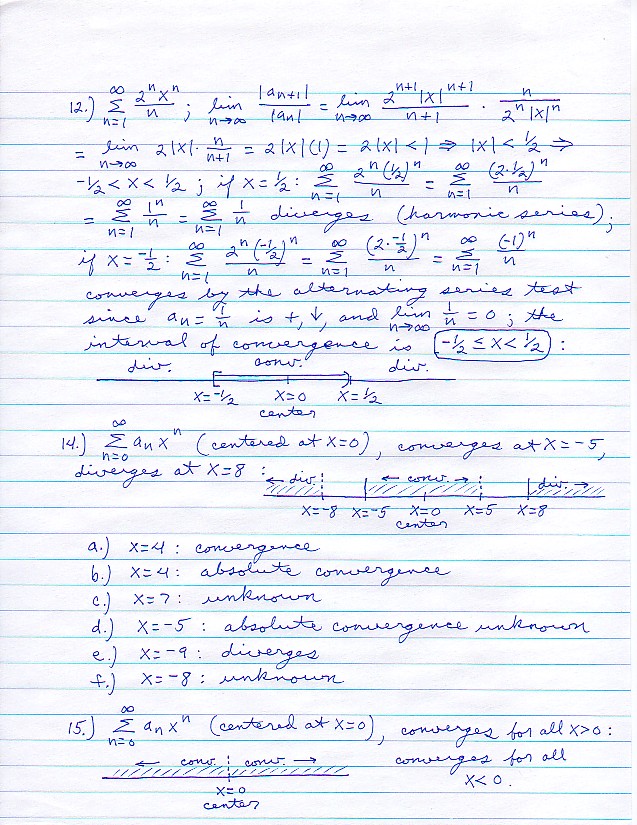 12.) ∞ Σ n=1 2ⁿxⁿ/n ; lim n→∞ |aₙ₊₁|/|aₙ| = lim n→∞ 2ⁿ⁺¹|x|ⁿ⁺¹/n+1 · n/2ⁿ|x|ⁿ
= lim n→∞ 2|x|· n/n+1 = 2|x|(1) = 2|x| < 1 ⇒ |x| < ½ ⇒
-½ < x < ½ ; if x = ½ : ∞ Σ n=1 2ⁿ(½)ⁿ/n = ∞ Σ n=1 (2·½)ⁿ/n
= ∞ Σ n=1 1ⁿ/n = ∞ Σ n=1 1/n diverges (harmonic series);
if x = -1/2 : ∞ Σ n=1 2ⁿ(-½)ⁿ/n = ∞ Σ n=1 (2·-½)ⁿ/n = ∞ Σ n=1 (-1)ⁿ/n
converges by the alternating series test
since aₙ = 1/n is +, ↓, and lim n→∞ 1/n = 0 ; the
interval of convergence is -½ ≤ x < ½ :
div. conv. div.
x=-½ x=0 x=½
center
14.) ∞ Σ n=0 aₙxⁿ (centered at x=0), converges at x=-5,
diverges at x=8 :
← div. ← conv. → div. →
x=-8 x=-5 x=0 x=5 x=8
center
a.) x=4 : convergence
b.) x=4 : absolute convergence
c.) x=7 : unknown
d.) x=-5 : absolute convergence unknown
e.) x=-9 : diverges
f.) x=-8 : unknown
15.) ∞ Σ n=0 aₙxⁿ (centered at x=0), converges for all x>0 :
← conv. conv. → converges for all
x<0.
x=0
center